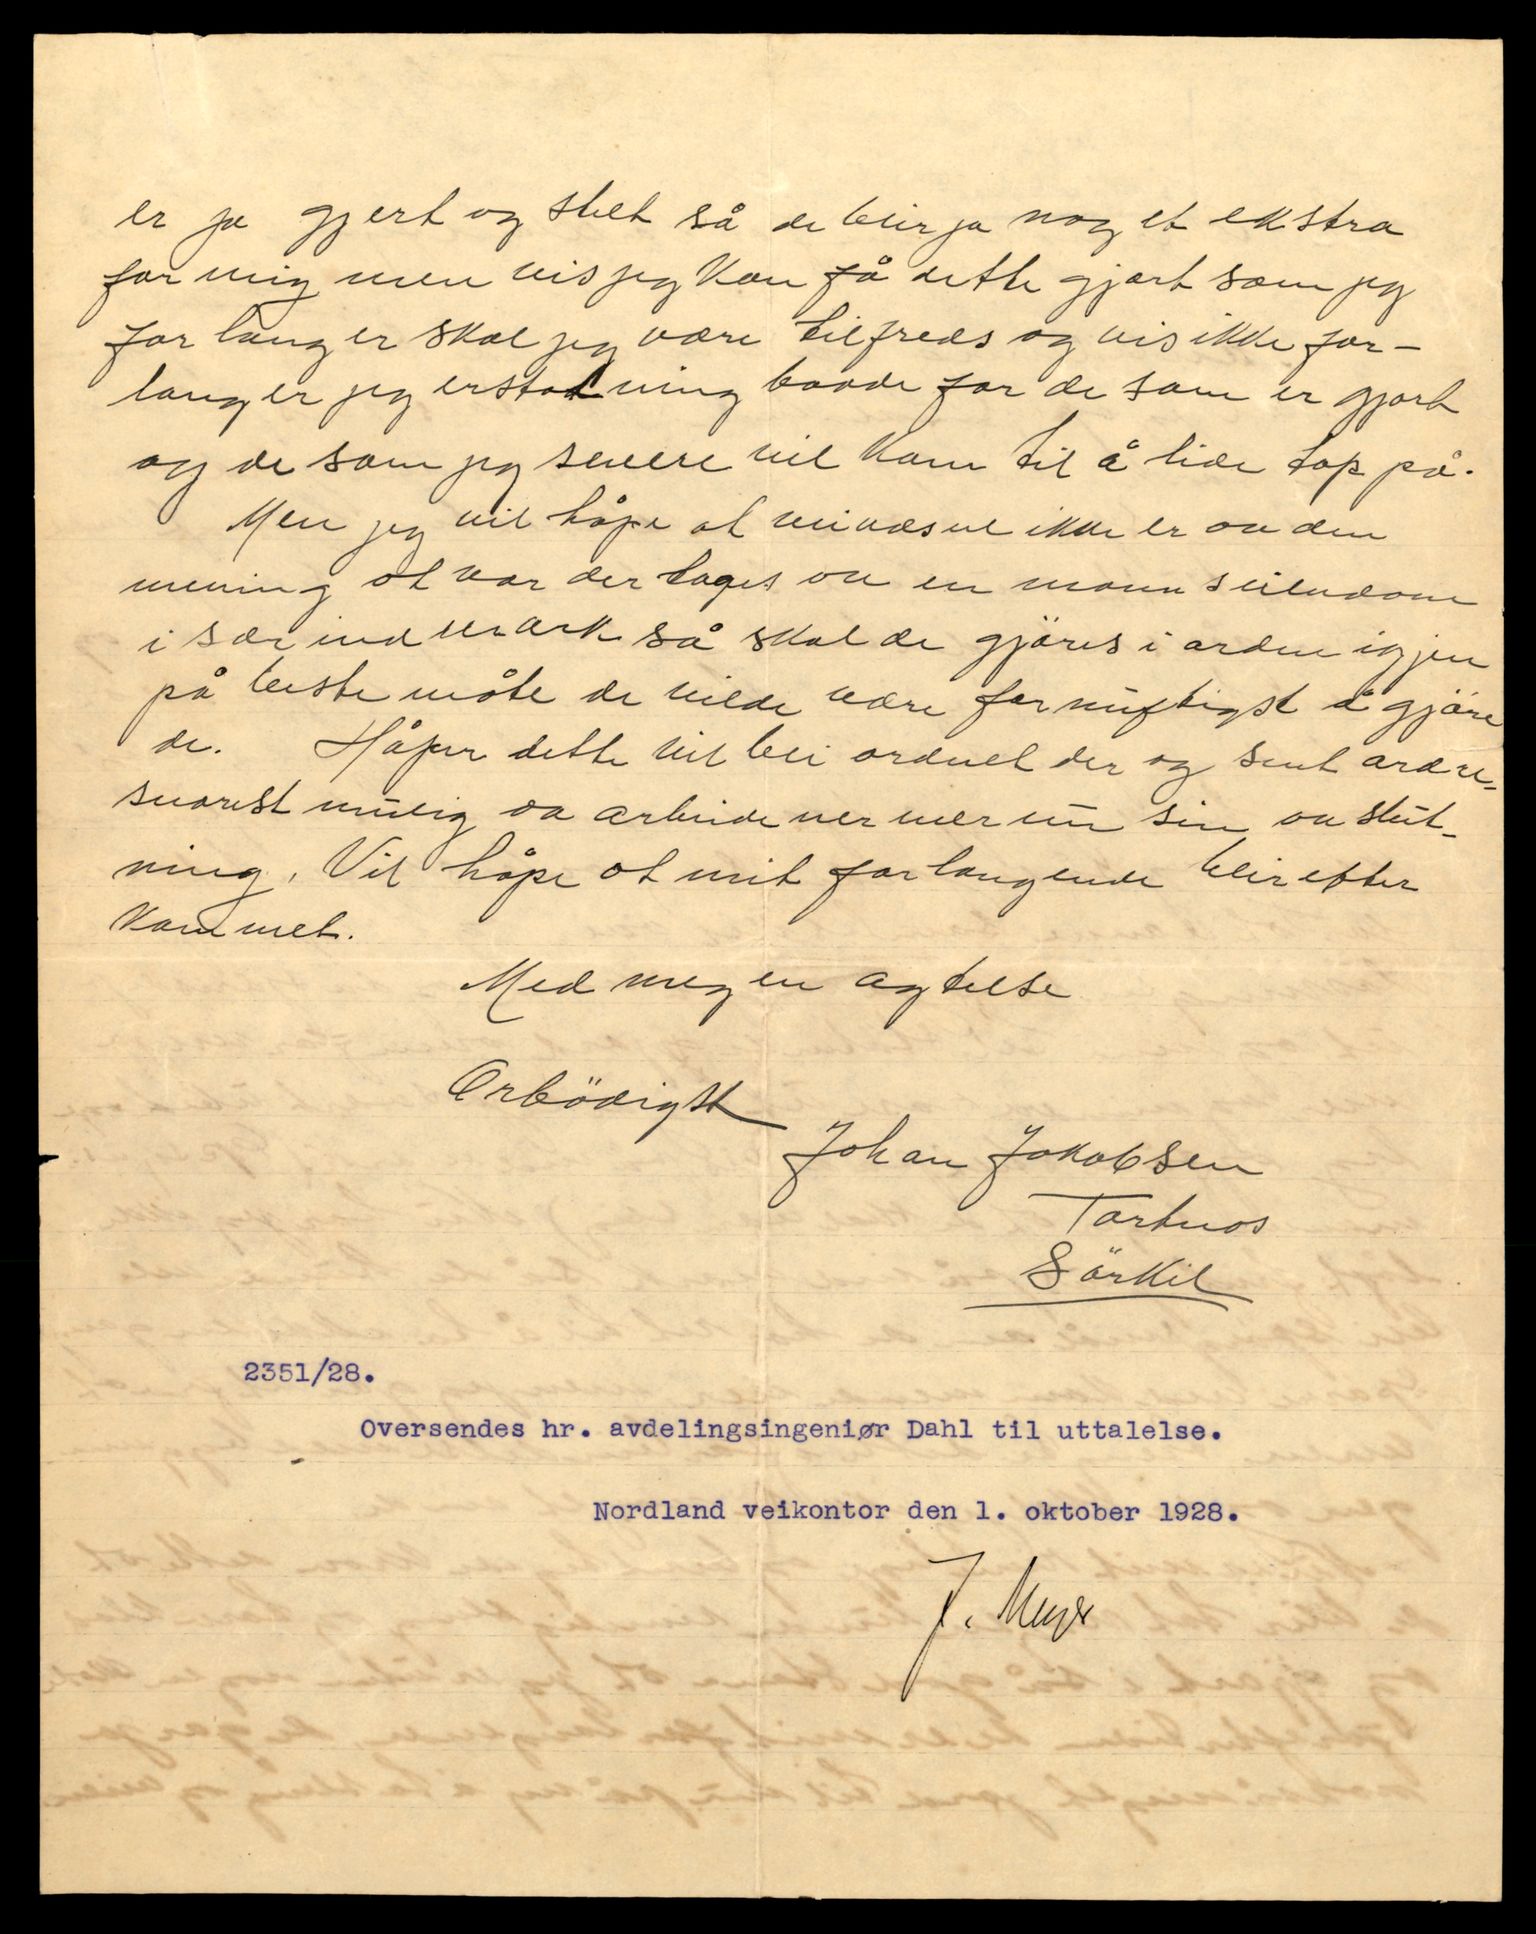 er ja gjert og stelt så de blir ja nog et ekstra
for mig men vis jeg kan få dette gjort som jeg
forlanger skal jeg være tilfreds og vis ikke for-
langer jeg erstatning baade for de som er gjort
og de som jeg senere vil kom til å lide tap på.
Men jeg vil håpe at veivæsnet ikke er av den
mening at var der tages av en mans eiendom
i sær indmark så skal de gjöres i orden igjen
på beste måte de vilde være fornuftigst å gjöre
de. Håper dette vil bli ordnet der og sent ordre
snarest mulig da arbeide nermer nu sin avslut-
ning. Vil håpe at mit forlangende blir efter
kommet.
Med megen agtelse
Ærbödigst
Johan Jakobsen
Tortnos
Sörkil
2351/28.
Oversendes hr. avdelingsingeniør Dahl til uttalelse.
Nordland veikontor den 1. oktober 1928.
J. Meyer